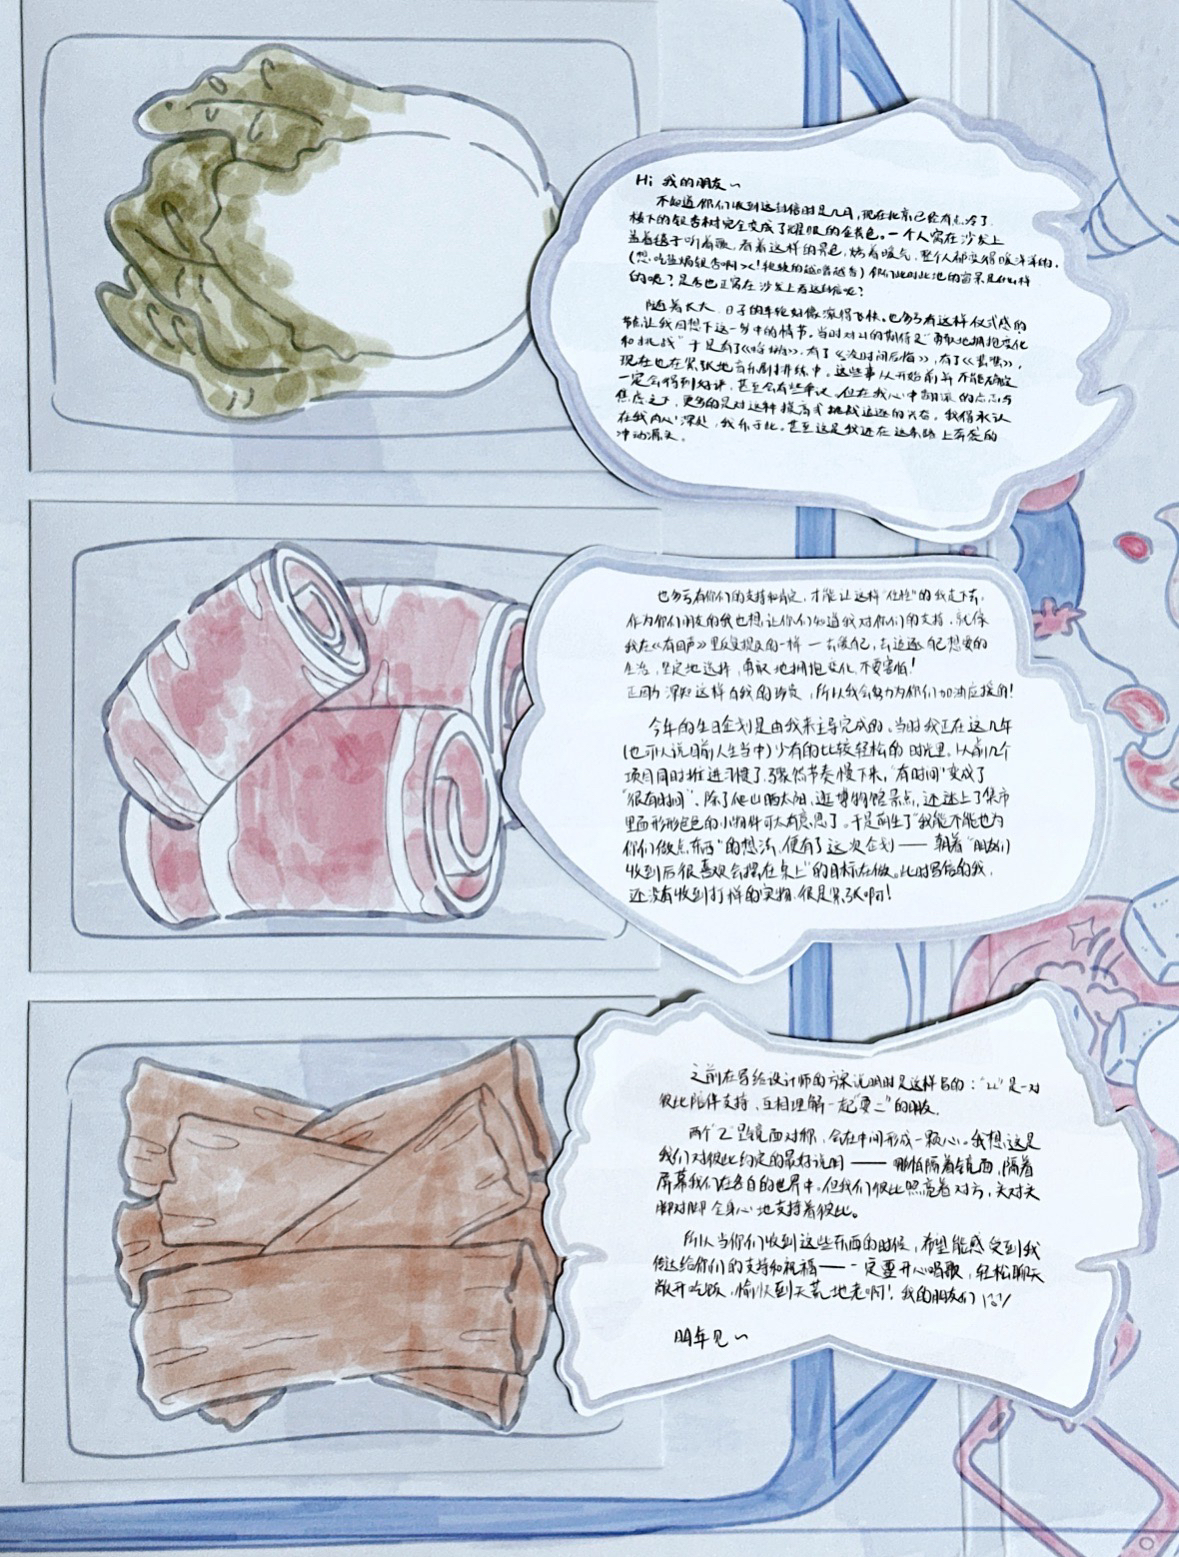 Hi 我的朋友~
不知道你们收到这封信时是几月，现在北京已经有点冷了，
楼下的银杏树完全变成了耀眼的金黄色。一个人窝在沙发上
盖着毯子听着歌，看着这样的景色，烤着暖气，整个人都变得暖洋洋的，
(想吃盐焗银杏啊><！软软的越嚼越香) 你们此时此地的窗景是什么样
的呢？是否也正窝在沙发上看这封信呢？
随着长大，日子的车轮好像滚得飞快。也多亏有这样仪式感的
节点让我回想下这一年中的情节。当时对 的期待是“勇敢地拥抱变化
和挑战”于是有了 ，有了《没时间后悔》，有了 ，
现在也在紧张地音乐剧排练中。这些事从开始前并不能确定
一定会得到好评，甚至会有些争议。但在我心中 的忐忑与
焦虑之下，更多的是对这种 挑战 的兴奋。我得承认
在我内心深处，我乐于此。甚至这是我还在这条路上奔袭的
冲动源头。
也多亏有你们的支持和肯定，才能让这样“任性”的我走下去，
作为你们朋友的我也想让你们知道我对你们的支持。就像
我在《有回声》里反复提及的一样 — 去做自己，去追逐自己想要的
生活，坚定地选择，勇敢地拥抱变化，不要害怕！
正因为深知这样自我的 ，所以我会努力为你们加油应援的！
今年的生日企划是由我来主导完成的。当时我正在这几年
(也可以说目前人生当中) 少有的比较轻松的时光里。从前几个
项目同时推进习惯了，骤然节奏慢下来，“有时间”变成了
“很有时间”。除了爬山晒太阳，逛博物馆景点，还迷上了集市
里面形形色色的小物件可太有意思了。于是萌生了“我能不能也为
你们做点东西”的想法，便有了这次企划 —— 朝着“朋友们
收到后很喜欢会摆在桌上”的目标在做。此时写信的我，
还没有收到打样的实物，很是紧张啊！
之前在写给设计师的方案说明时是这样写的：“22”是一对
彼此陪伴支持、互相理解一起“耍二”的朋友。
两个“2”呈镜面对称，会在中间形成一颗心。我想，这是
我们对彼此约定的最好说明 —— 哪怕隔着镜面，隔着
屏幕我们在各自的世界中。但我们彼此照亮着对方，头对头
脚对脚全身心地支持着彼此。
所以当你们收到这些东西的时候，希望能感受到我
传达给你们的支持和祝福 —— 一定要开心唱歌，轻松聊天
敞开吃饭，愉快到天荒地老啊！我的朋友们
明年见~